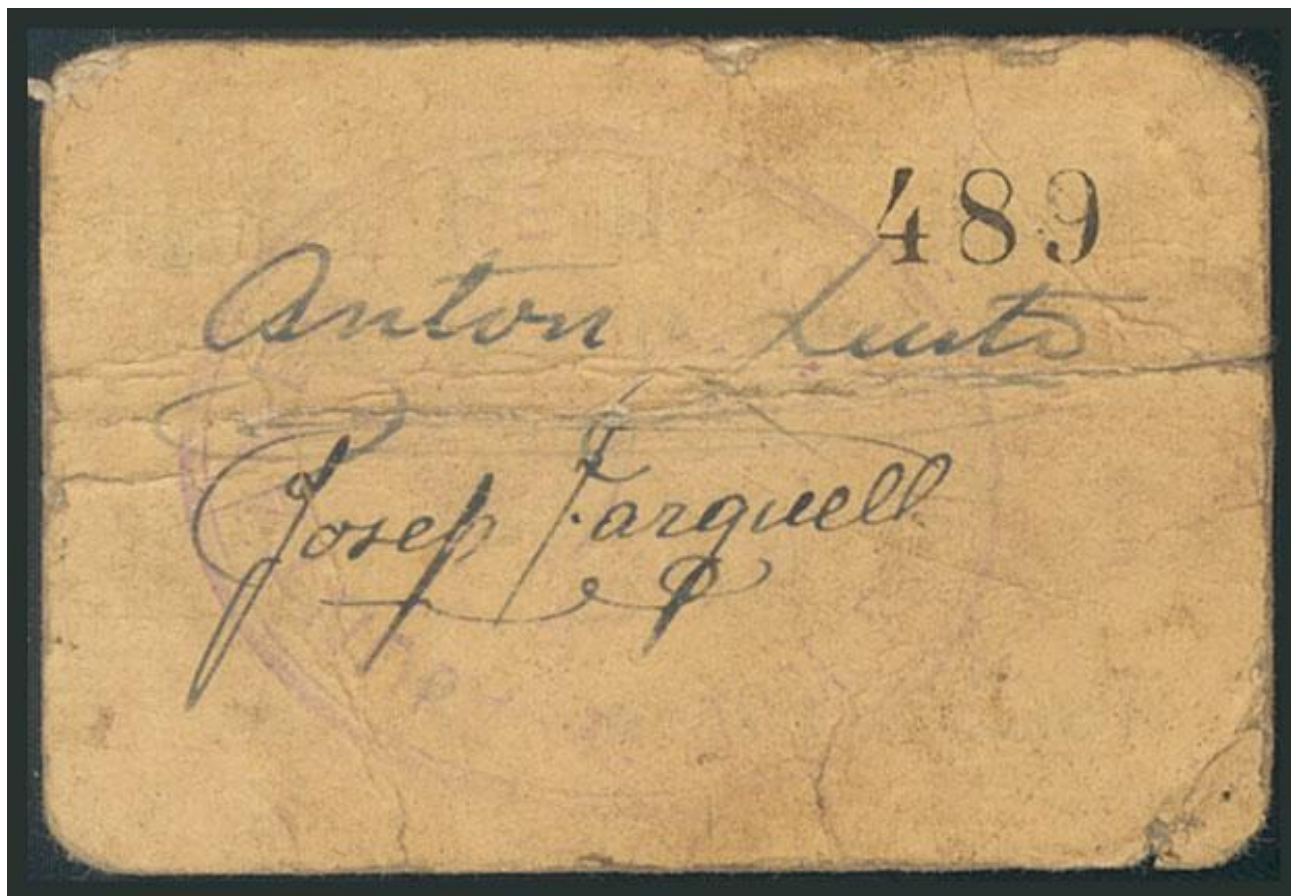 489
Anton
Josep Farguell